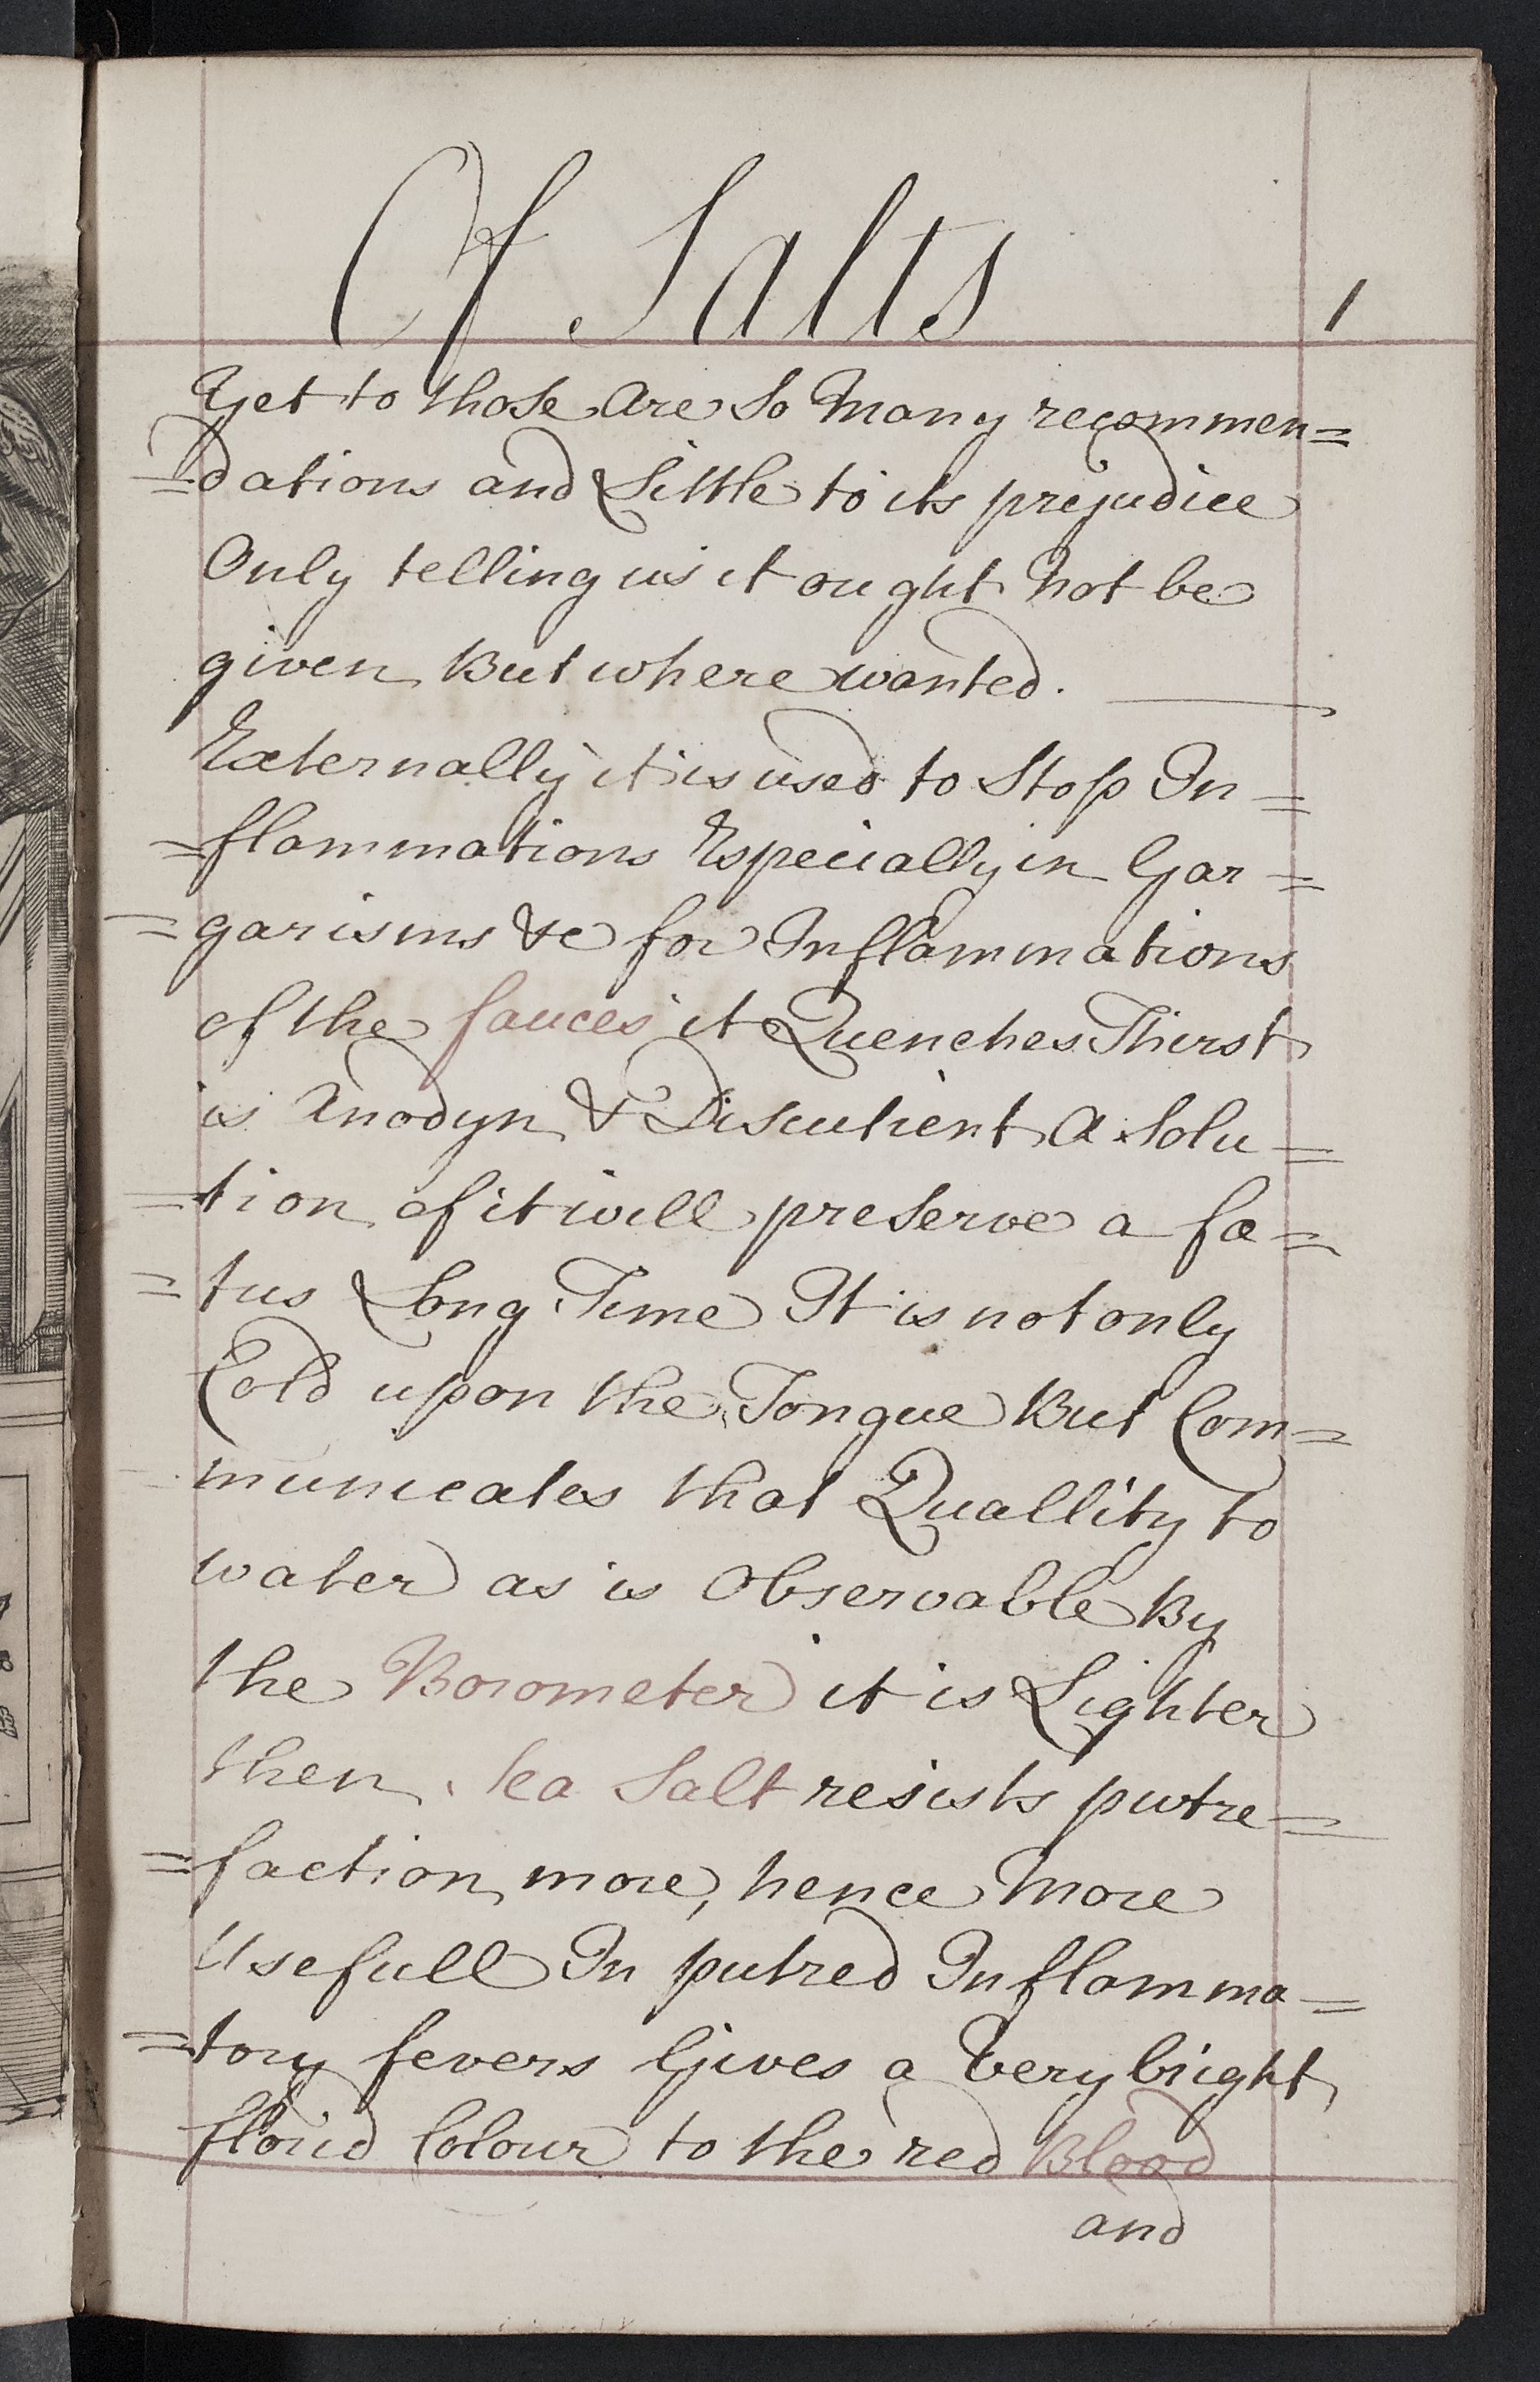 Of Salts
1
Yet to those Are So Many recommen=
=dations and Little to its prejudice
Only telling us it ought Not be
given But where wanted.
Externally it is used to Stop In=
=flammations Especially in Gar=
=garisms &c for Inflammations
of the fauces it Quenches Thirst
is Anodyn & Discutient A Solu=
=tion of it will preserve a fœ=
=tus Long Time It is not only
Cold upon the Tongue But Com=
municates that Quallity to
water as is Observable By
the Borometer it is Lighter
then Sea Salt resists putre=
=faction more, hence More
Usefull In putred Inflamma=
=tory fevers Gives a Very bright
florid Colour to the red Blood
and